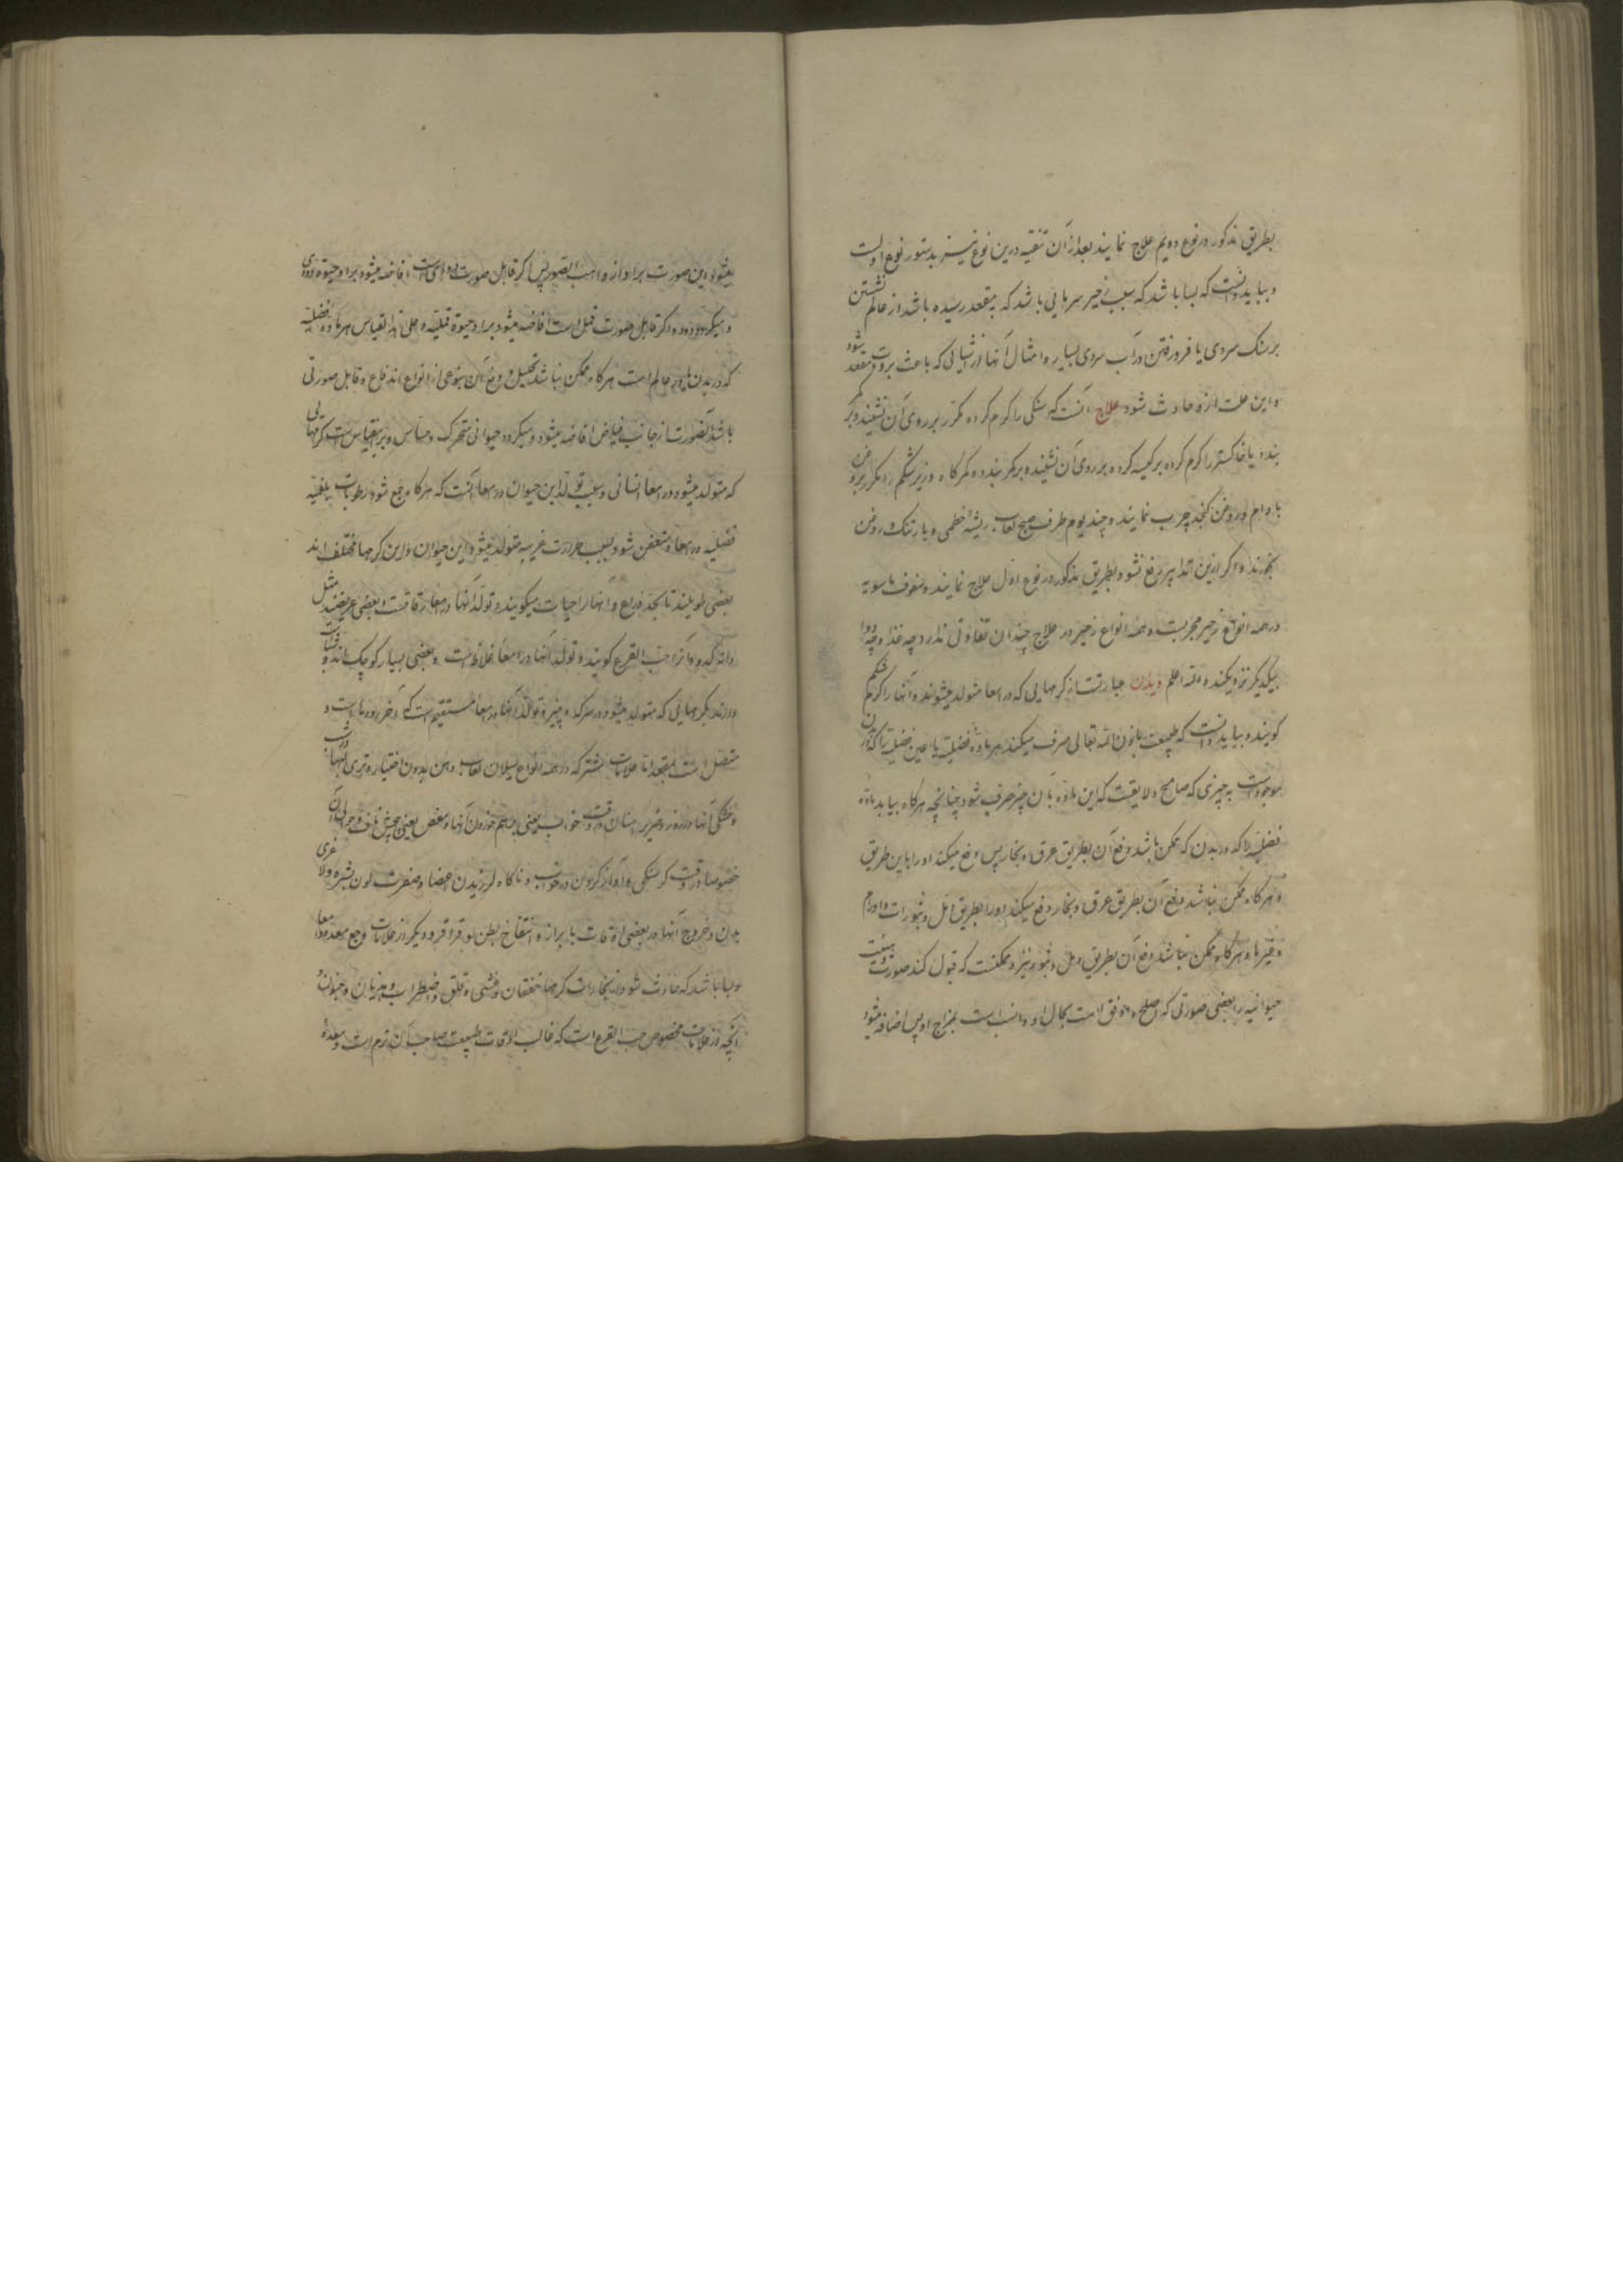 بطریق مذکور در نوع دویم علاج نمایند بعد از آن تنقیه درین نوع نیز بدستور نوع اولست
و بباید دانست که بسا باشد که سبب زحیر سرمایی باشد که بمقعد رسیده باشد از عالم نشستن
بر سنک سردی یا فرو رفتن در آب سردی بسیار و امثال آنها از اشیائی که باعث برودت مقعد شود
و این علت ازو حادث شود علاج آنست که سنکی را کرم کرده مکرر بر روی آن نشیند و بر کمر
بندد یا خاکستر را کرم کرده بر کیسه کرده بر روی آن نشیند و بر کمر بندد و کمرکاه و زیر شکم را مکرر بروغن
بادام و روغن کنجد چرب نمایند و چند یوم طرف صبح لعاب ریشه خطمی و بارتنک و روغن
بخورند و اکر ازین تدابیر رفع نشود بطریق مذکور در نوع اول علاج نمایند و سفوف ماسویه
در همه انواع زحیر مجربست و همه انواع زحیر در علاج چندان تفاوتی ندارد چه غذا و چه دوا
بیکدیکر نزدیکند والله اعلم دیدان عبارتست از کرمهایی که در امعا متولد میشوند و آنها را کرم شکم
کویند و بباید دانست که طبیعت باذن الله تعالی صرف میکند هر ماده فضلیه یا غیر فضلیه را که در بدن
موجود است به چیزی که صالح و لایقست که این ماده بآن چیز صرف شود چنانچه هرکاه بیابد ماده
فضلیه را که در بدن که ممکن باشد دفع آن بطریق عرق و بخار پس دفع میکند او را باین طریق
و هرکاه ممکن نباشد دفع آن بطریق عرق و بخار دفع میکند او را بطریق دمل و بثورات و اورام
و غیرها و هرکاه ممکن نباشد دفع آن بطریق دمل و بثور نیز و ممکنست که قبول کند صورت و هیئت
حیوانیه را بعضی صورتی که اصلح و اوفق است بحال او و انسب است بمزاج او پس اضافه میشود
میشود این صورت براو از واهب الصور پس اکر قابل صورت دودی است افاضه میشود براو حیوة دودی
و میکردد دود و اکر قابل صورت قمل است افاضه میشود براو حیوة قملیه و علی هذا القیاس هر ماده فضلیه
که در بدن یا در عالم است هرکاه ممکن نباشد تحلیل و دفع آن بنوعی از انواع اندفاع و قابل صورتی
باشد آنصورت از جانب فیاض افاضه میشود و میکردد حیوانی متحرک و حساس و برینقیاس است کرمهایی
که متولد میشود در امعا انسانی و سبب تولد این حیوان در امعا آنست که هرکاه جمع شود رطوبات بلغمیه
فضلیه در امعا و متعفن شود بسبب حرارت غریبه متولد میشود این حیوان و این کرمها مختلف اند
بعضی طویلند تا بحد ذراع و آنها را حیات میکویند و تولد آنها در امعا دقاقست و بعضی عریضند مثل
دانه کدو و آنرا حب القرع کویند و تولد آنها در امعا غلاظ است و بعضی بسیار کوچک اند و
دارند بکرمهایی که متولد میشود در سرکه و پنیر و تولد آنها در امعا مستقیم است که آخر روده ها است و
متصل است بمقعد اما علامات مشترکه در همه انواع سیلان لعاب دهن بدون اختیار و تری لبها در شب
و خشکی آنها در روز و صریر اسنان در وقت خواب یعنی برهم خوردن آنها و مغص یعنی پیچش ناف و حوالی آن
خصوصا در وقت کرسنکی و آواز کردن در خواب و ناکاه لرزیدن اعضا و صفرت لون بشره و لاغری
بدن و خروج آنها در بعضی اوقات با براز و انتفاخ بطن و قراقر و دیکر از علامات وجع معده و امعا
و بسا باشد که حادث شود از بخارات کرمها خفقان و غشی و قلق و اضطراب و هذیان و جنون و
آنچه از علامات مخصوص حب القرع است که غالب اوقات طبیعت صاحب آن نرم است و معده